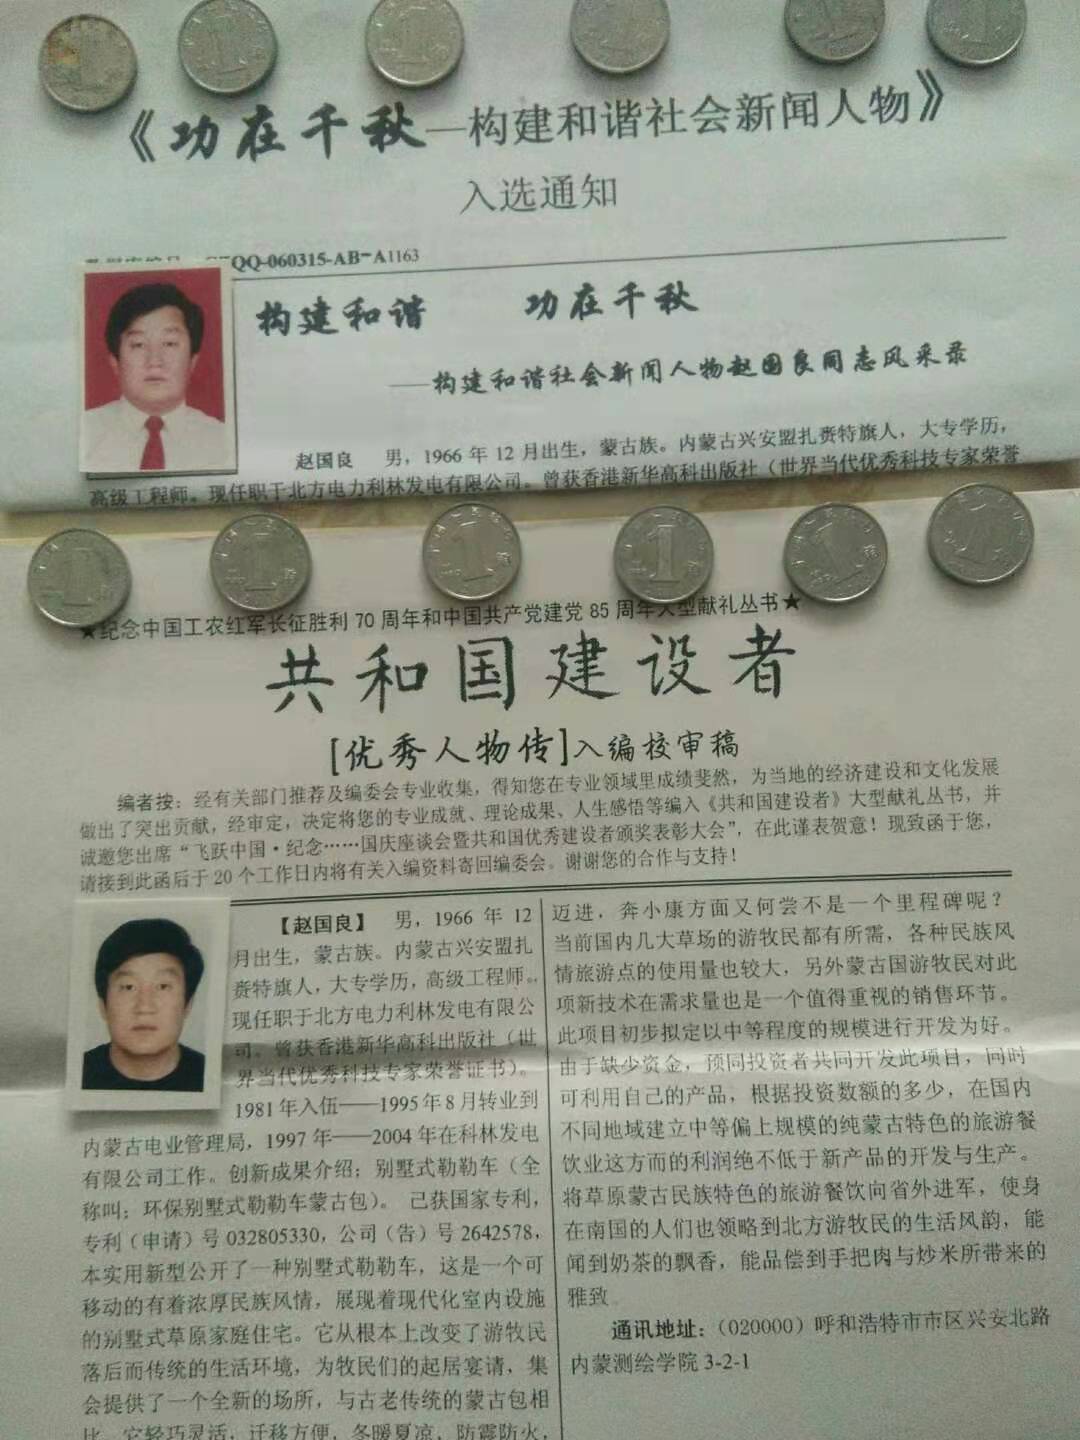 《功在千秋—构建和谐社会新闻人物》
入选通知
QQ-060315-AB-A1163
构建和谐 功在千秋
——构建和谐社会新闻人物赵国良同志风采录
赵国良 男，1966年12月出生，蒙古族。内蒙古兴安盟扎赉特旗人，大专学历，
高级工程师。现任职于北方电力利林发电有限公司。曾获香港新华高科出版社（世界当代优秀科技专家荣誉
★纪念中国工农红军长征胜利70周年和中国共产党建党85周年大型献礼丛书★
共和国建设者
[优秀人物传]入编校审稿
编者按：经有关部门推荐及编委会专业收集，得知您在专业领域里成绩斐然，为当地的经济建设和文化发展
做出了突出贡献，经审定，决定将您的专业成就、理论成果、人生感悟等编入《共和国建设者》大型献礼丛书，并
诚邀您出席“飞跃中国·纪念……国庆座谈会暨共和国优秀建设者颁奖表彰大会”，在此谨表贺意！现致函于您，
请接到此函后于20个工作日内将有关入编资料寄回编委会。谢谢您的合作与支持！
【赵国良】 男，1966年12
月出生，蒙古族。内蒙古兴安盟扎
赉特旗人，大专学历，高级工程师。
现任职于北方电力利林发电有限公
司。曾获香港新华高科出版社（世
界当代优秀科技专家荣誉证书）。
1981年入伍——1995年8月转业到
内蒙古电业管理局，1997年——2004年在科林发电
有限公司工作。创新成果介绍；别墅式勒勒车（全
称叫；环保别墅式勒勒车蒙古包）。 已获国家专利，
专利（申请）号032805330，公司（告）号2642578，
本实用新型公开了一种别墅式勒勒车，这是一个可
移动的有着浓厚民族风情，展现着现代化室内设施
的别墅式草原家庭住宅。它从根本上改变了游牧民
落后而传统的生活环境，为牧民们的起居宴请，集
会提供了一个全新的场所，与古老传统的蒙古包相
比，它轻巧灵活，迁移方便，冬暖夏凉，防震防火，
迈进，奔小康方面又何尝不是一个里程碑呢？
当前国内几大草场的游牧民都有所需，各种民族风
情旅游点的使用量也较大，另外蒙古国游牧民对此
项新技术在需求量也是一个值得重视的销售环节。
此项目初步拟定以中等程度的规模进行开发为好。
由于缺少资金，预同投资者共同开发此项目，同时
可利用自己的产品，根据投资数额的多少，在国内
不同地域建立中等偏上规模的纯蒙古特色的旅游餐
饮业这方而的利润绝不低于新产品的开发与生产。
将草原蒙古民族特色的旅游餐饮向省外进军，使身
在南国的人们也领略到北方游牧民的生活风韵，能
闻到奶茶的飘香，能品偿到手把肉与炒米所带来的
雅致
通讯地址：（020000）呼和浩特市市区兴安北路
内蒙测绘学院3-2-1